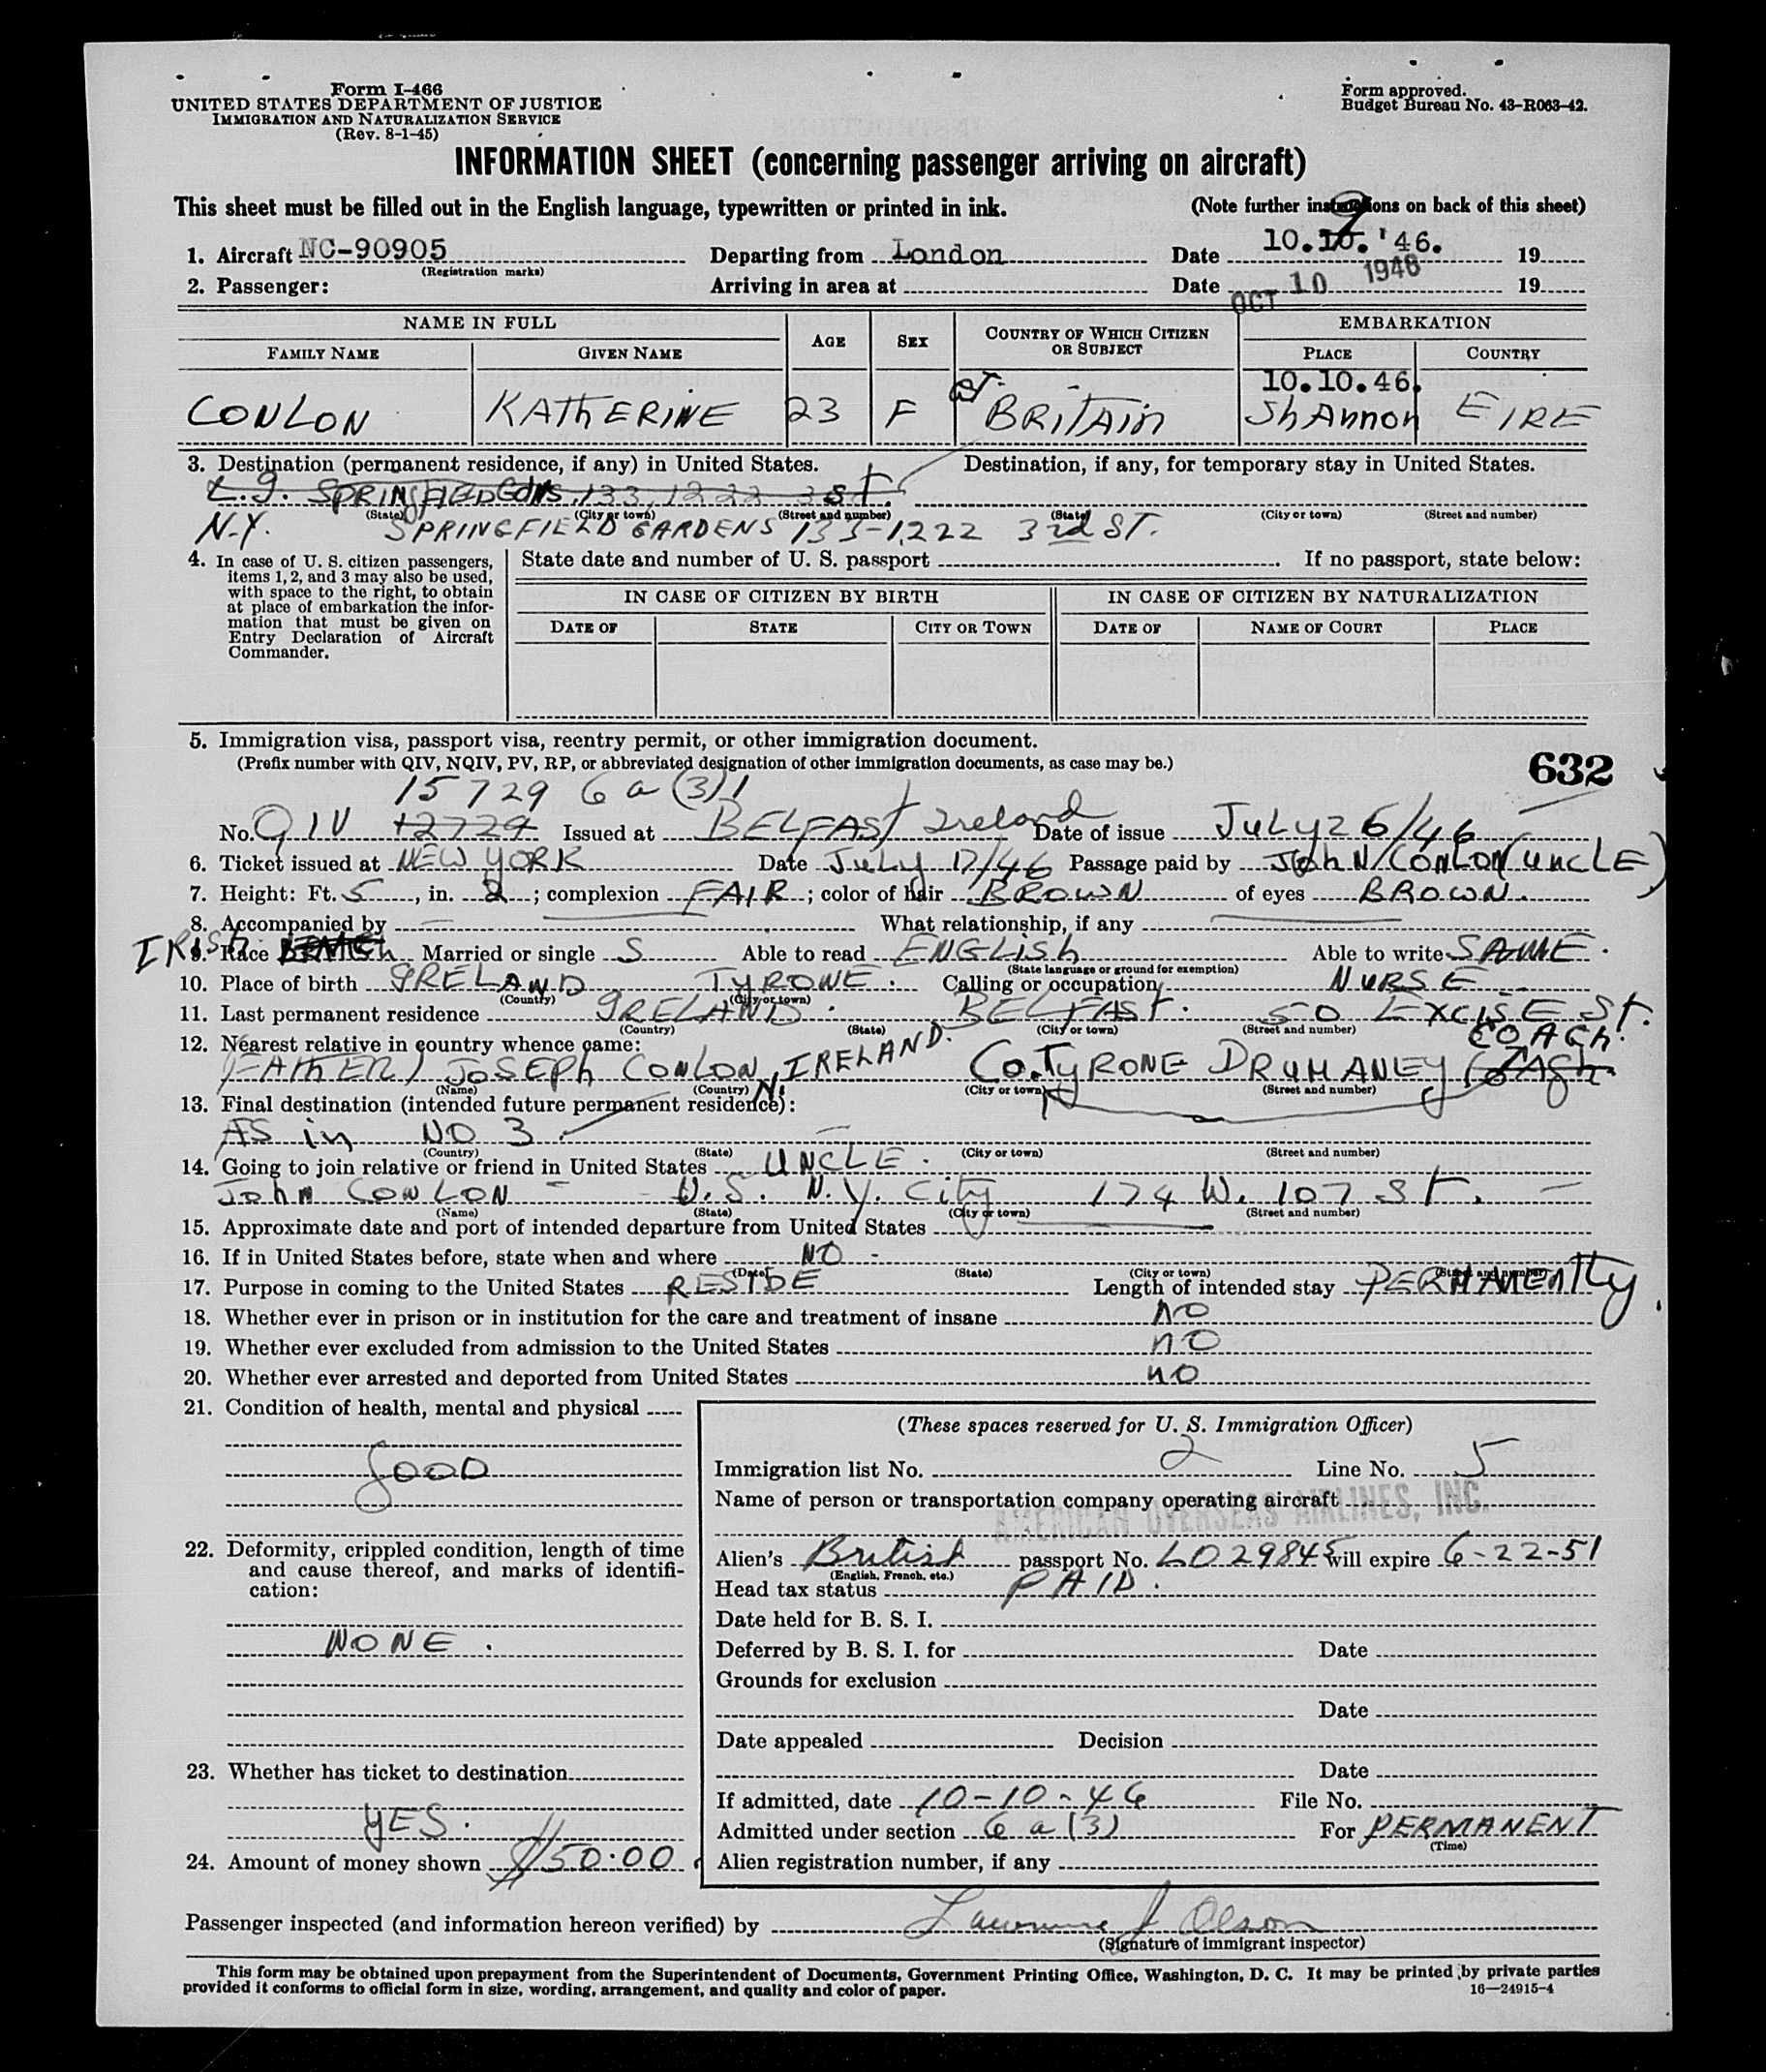 Form I-466
UNITED STATES DEPARTMENT OF JUSTICE
IMMIGRATION AND NATURALIZATION SERVICE
(Rev. 8-1-45)
Form approved.
Budget Bureau No. 43-R063-42.
INFORMATION SHEET (concerning passenger arriving on aircraft)
This sheet must be filled out in the English language, typewritten or printed in ink. (Note further instructions on back of this sheet)
9
1. Aircraft NC-90905 Departing from London Date 10.10.'46. 19
(Registration marks)
2. Passenger: Arriving in area at Date OCT 10 1946 19
NAME IN FULL AGE SEX COUNTRY OF WHICH CITIZEN OR SUBJECT EMBARKATION
FAMILY NAME GIVEN NAME PLACE COUNTRY
10.10.46.
CONLON KATHERINE 23 F GT. BRITAIN ShANNON EIRE
3. Destination (permanent residence, if any) in United States. Destination, if any, for temporary stay in United States.
L.I. SPRINGFIELD Gdns. 133, 1222 3 St
(State) (City or town) (Street and number) (State) (City or town) (Street and number)
N.Y. SPRINGFIELD GARDENS 133-1222 3rd ST.
4. In case of U. S. citizen passengers, items 1, 2, and 3 may also be used, with space to the right, to obtain at place of embarkation the information that must be given on Entry Declaration of Aircraft Commander.
State date and number of U. S. passport . If no passport, state below:
IN CASE OF CITIZEN BY BIRTH IN CASE OF CITIZEN BY NATURALIZATION
DATE OF STATE CITY OR TOWN DATE OF NAME OF COURT PLACE
5. Immigration visa, passport visa, reentry permit, or other immigration document.
(Prefix number with QIV, NQIV, PV, RP, or abbreviated designation of other immigration documents, as case may be.)
632
15729 6 a (3) 1
No. QIV 12729 Issued at BELFAST Ireland Date of issue JULY 26/46
6. Ticket issued at NEW YORK Date July 17/46 Passage paid by JohN CONLON (UNCLE)
7. Height: Ft. 5, in. 2; complexion FAIR; color of hair BROWN of eyes BROWN.
8. Accompanied by What relationship, if any
IRISH
9. Race Married or single S Able to read ENGLISh Able to write SAME.
(State language or ground for exemption)
10. Place of birth IRELAND TYRONE. Calling or occupation NURSE
(Country) (City or town)
11. Last permanent residence IRELAND. BELFAST. 50 EXCISE St.
(Country) (State) (City or town) (Street and number)
12. Nearest relative in country whence came: COAGH.
(FATHER) JOSEPH CONLON, N. IRELAND. Co. TYRONE DRUMANEY
(Name) (Country) (City or town) (Street and number)
13. Final destination (intended future permanent residence):
AS in NO 3
(Country) (State) (City or town) (Street and number)
14. Going to join relative or friend in United States UNCLE.
JohN CONLON - U.S. N.Y. City 174 W. 107 St.
(Name) (State) (City or town) (Street and number)
15. Approximate date and port of intended departure from United States
16. If in United States before, state when and where NO -
(Date) (State) (City or town) (Street and number)
17. Purpose in coming to the United States RESIDE Length of intended stay PERMANENTLY.
18. Whether ever in prison or in institution for the care and treatment of insane NO
19. Whether ever excluded from admission to the United States NO
20. Whether ever arrested and deported from United States NO
21. Condition of health, mental and physical
GOOD
22. Deformity, crippled condition, length of time and cause thereof, and marks of identification:
NONE.
23. Whether has ticket to destination
YES.
24. Amount of money shown $50.00
(These spaces reserved for U. S. Immigration Officer)
Immigration list No. 2 Line No. 5
Name of person or transportation company operating aircraft
AMERICAN OVERSEAS AIRLINES, INC.
Alien's British passport No. LO29845 will expire 6-22-51
(English, French, etc.)
Head tax status PAID.
Date held for B. S. I.
Deferred by B. S. I. for Date
Grounds for exclusion
Date
Date appealed Decision
Date
If admitted, date 10-10-46 File No.
Admitted under section 6 a (3) For PERMANENT
(Time)
Alien registration number, if any
Passenger inspected (and information hereon verified) by Lawrence J Olson
(Signature of immigrant inspector)
This form may be obtained upon prepayment from the Superintendent of Documents, Government Printing Office, Washington, D. C. It may be printed by private parties
provided it conforms to official form in size, wording, arrangement, and quality and color of paper. 16—24915-4